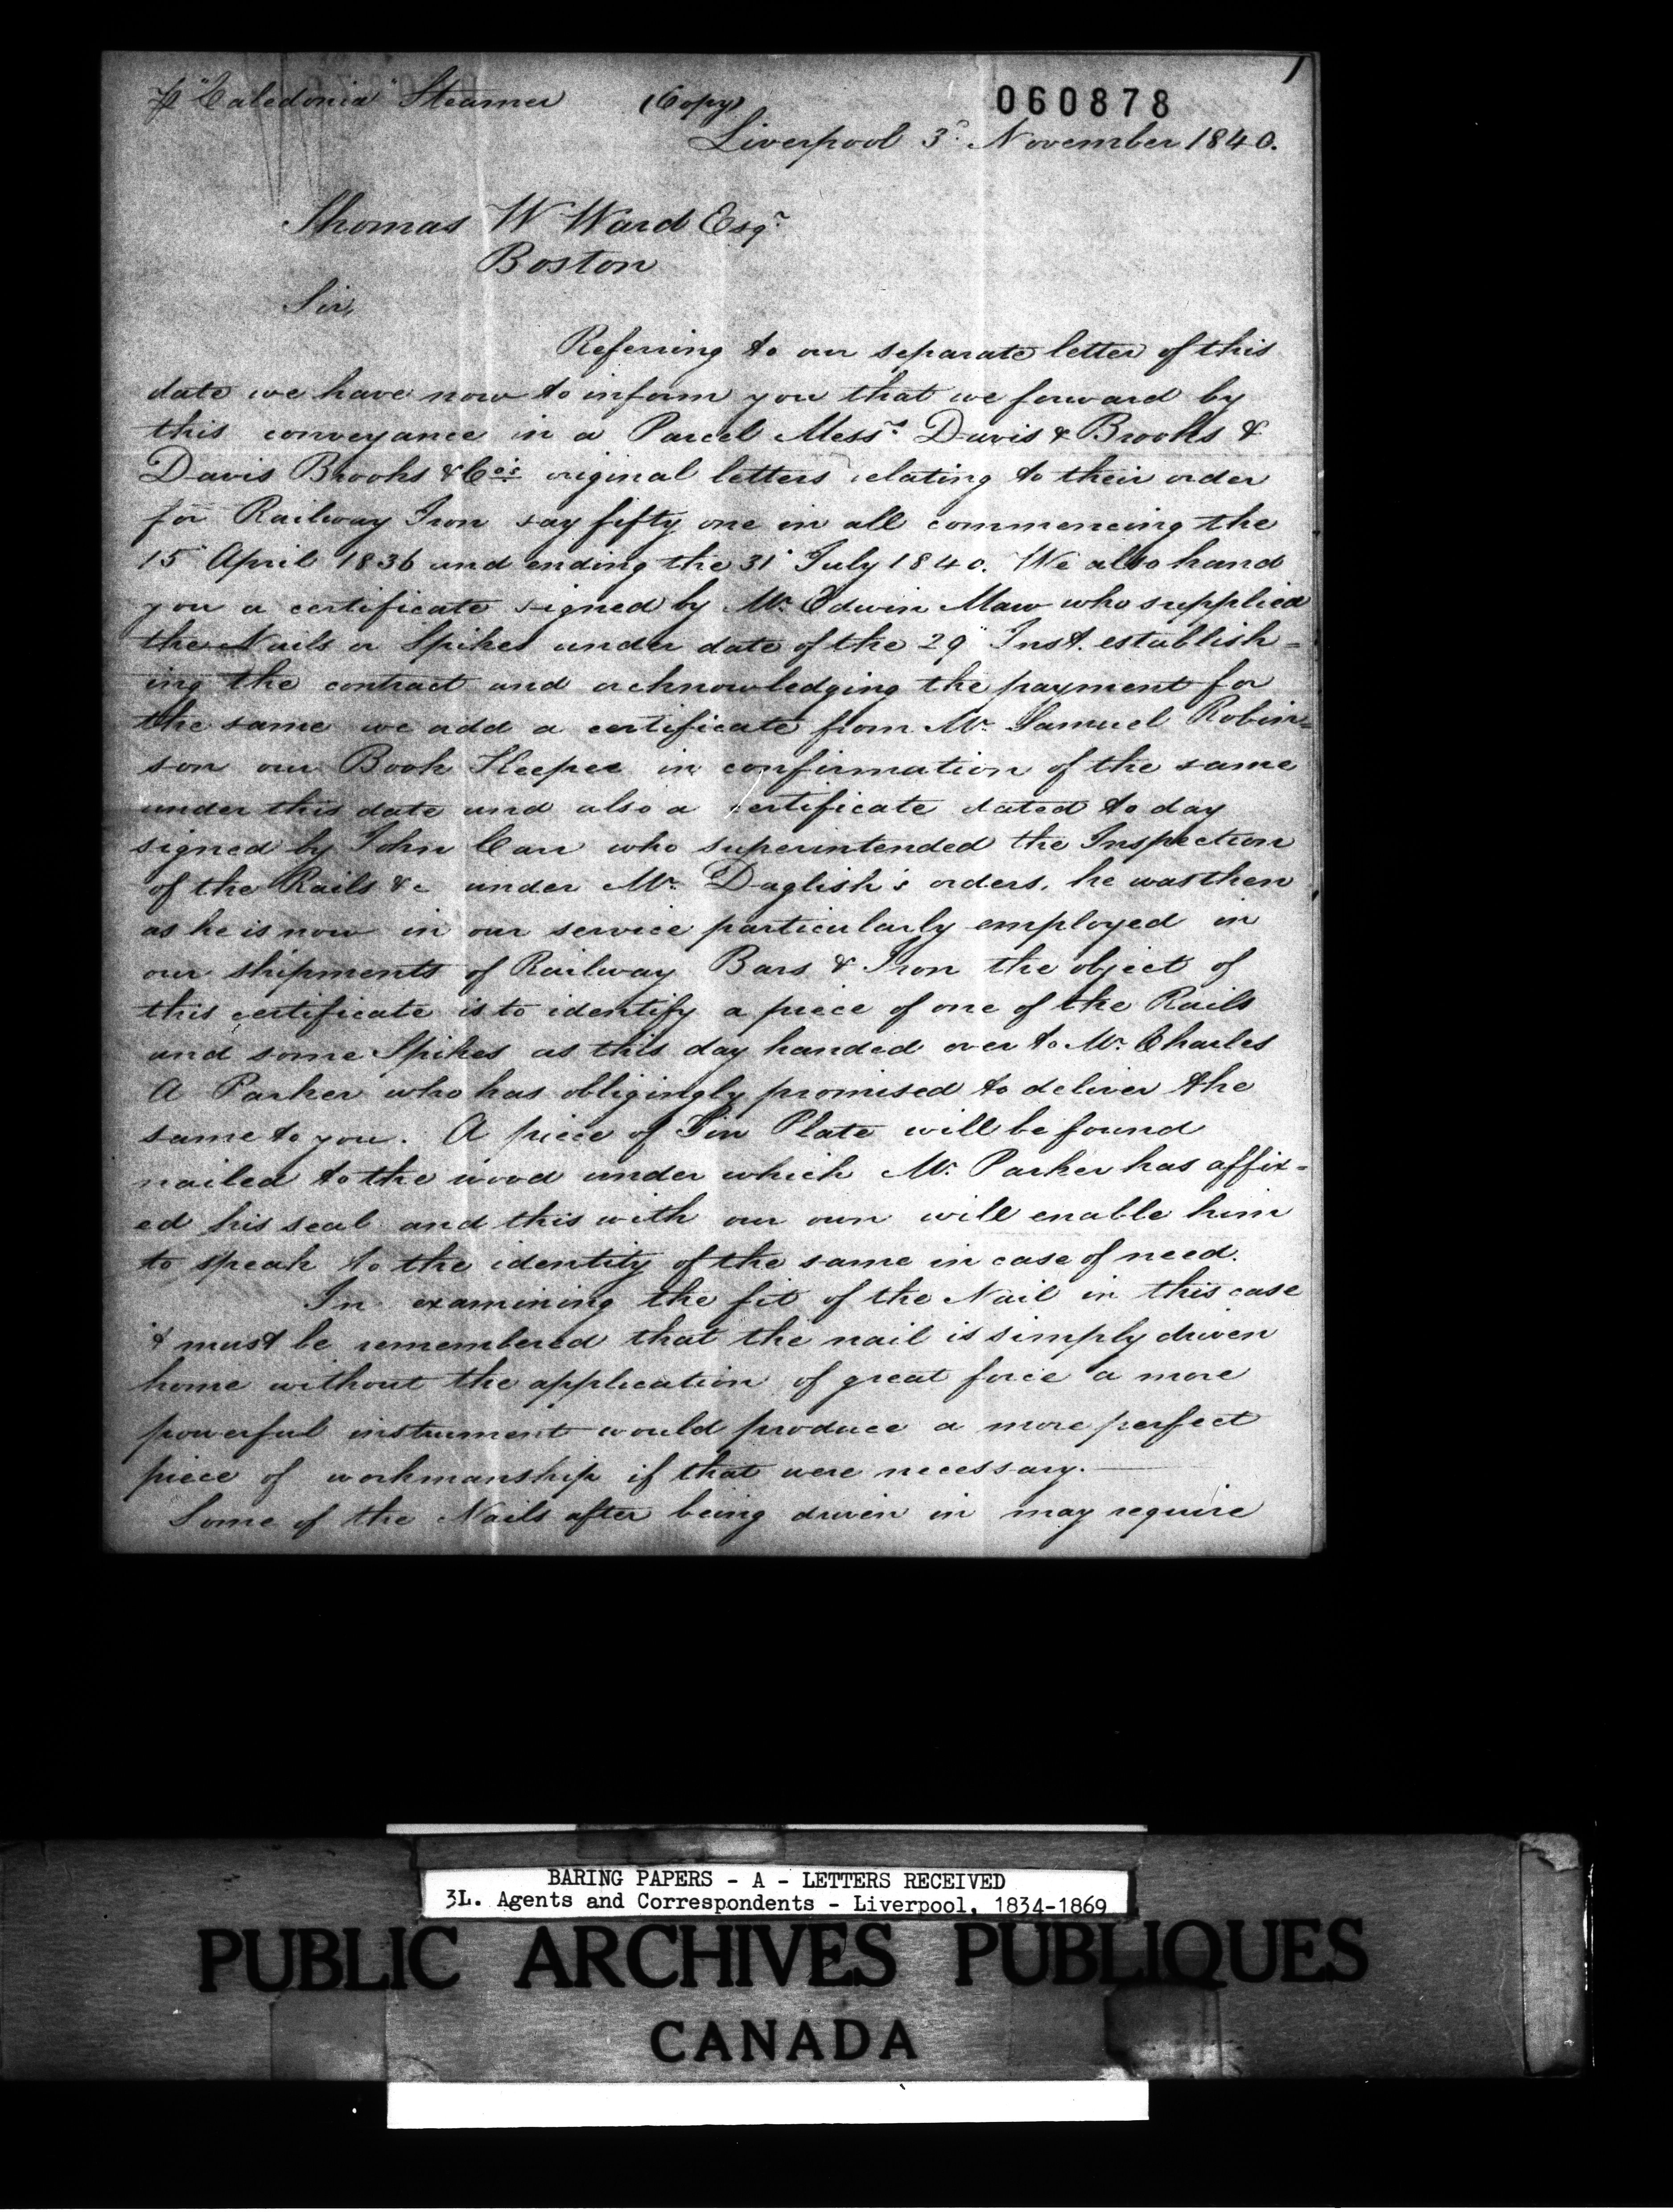 1
060878
p "Caledonia" Steamer (Copy)
Liverpool 3d. November 1840.
Thomas W Ward Esqr.
Boston
Sir,
Referring to our separate letter of this
date we have now to inform you that we forward by
this conveyance in a Parcel Messrs. Davis & Brooks &
Davis Brooks & Co's original letters relating to their order
for Railway Iron say fifty one in all commencing the
15 April 1836 and ending the 31 July 1840. We also hand
you a certificate signed by Mr. Edwin Maw who supplied
the Nails or Spikes under date of the 29 Inst. establish=
ing the contract and acknowledging the payment for
the same we add a certificate from Mr. Samuel Robin=
son our Book Keeper in confirmation of the same
under this date and also a certificate dated to day
signed by John Carr who superintended the Inspection
of the Rails &c under Mr. Daglish's orders, he was then
as he is now in our service particularly employed in
our shipments of Railway Bars & Iron the object of
this certificate is to identify a piece of one of the Rails
and some Spikes as this day handed over to Mr. Charles
A Parker who has obligingly promised to deliver the
same to you. A piece of Tin Plate will be found
nailed to the wood under which Mr. Parker has affix=
ed his seal and this with our own will enable him
to speak to the identity of the same in case of need.
In examining the fit of the Nail in this case
it must be remembered that the nail is simply driven
home without the application of great force a more
powerful instrument would produce a more perfect
piece of workmanship if that were necessary.
Some of the Nails after being driven in may require
BARING PAPERS - A - LETTERS RECEIVED
3L. Agents and Correspondents - Liverpool, 1834-1869
PUBLIC ARCHIVES PUBLIQUES
CANADA